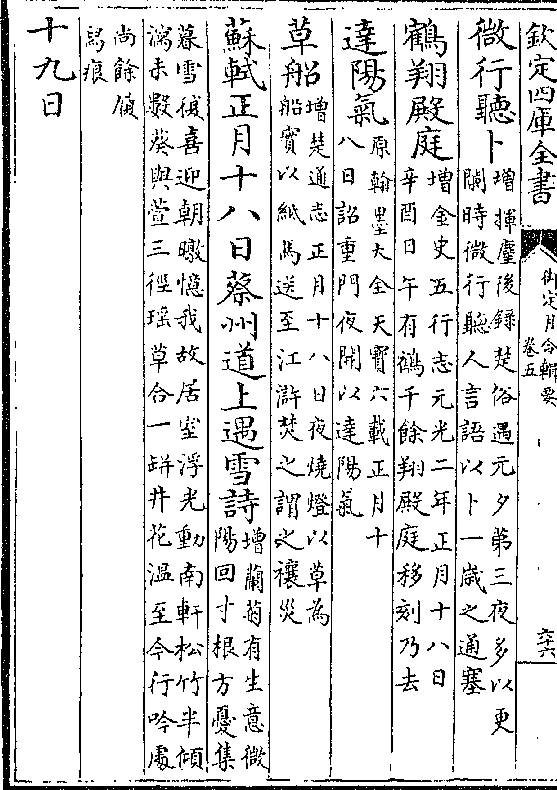 欽定四庫全書
御定月令輯要
卷五
六六
微行聽卜
增揮麈後録楚俗遇元夕第三夜多以更
闌時微行聽人言語以卜一歲之通塞
鶴翔殿庭
增金史五行志元光二年正月十八日
辛酉日午有鶴千餘翔殿庭移刻乃去
達陽氣
原翰墨大全天寶六載正月十
八日詔重門夜開以達陽氣
草船
增楚通志正月十八日夜燒燈以草為
船實以紙馬送至江滸焚之謂之禳災
蘇軾正月十八日蔡州道上遇雪詩
增蘭菊有生意微
陽回寸根方憂集
暮雪復喜迎朝暾憶我故居室浮光動南軒松竹半傾
瀉未數葵與萱三徑瑶草合一缾井花溫至今行吟處
尚餘履
舄痕
十九日